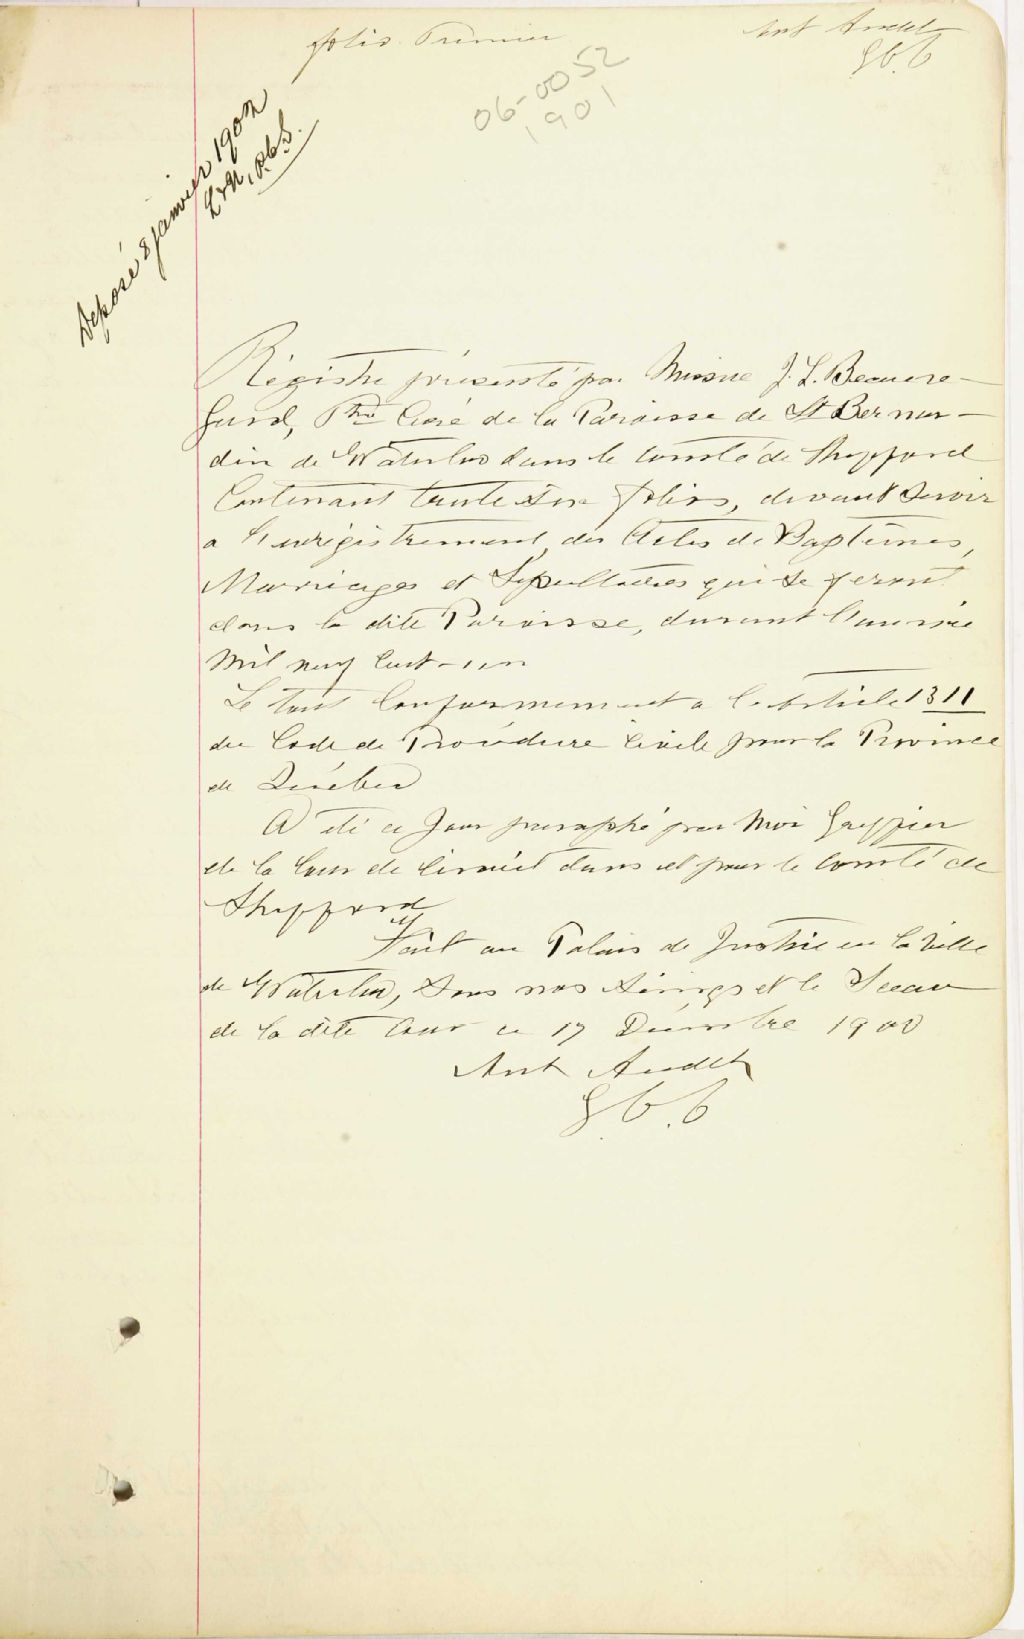 folio Premier
Ant Audet
G C. C
06-0052
1901
Déposé 8 janvier 1902
Régistre présenté par Missire J. L. Beaure-
gard, Ptre Curé de la Paroisse de St Bernar-
din de Waterloo dans le Comté de Shefford
Contenant trente six folios, devant servir
a l'enrégistrement des Actes de Baptêmes,
Marriages et Sépultures qui se feront
dans la dite Paroisse, durant l'année
mil neuf cent-un
Le tout Conformement a l'Article 1311
du Code de Procédure Civile pour la Province
de Québec
A été ce jour paraphé par Moi Greffier
de la Cour de Circuit dans et pour le Comté de
Shefford
Fait au Palais de Justice en la Ville
de Waterloo, sous nos seings et le Sceau
de la dite Cour ce 17 Décembre 1900
Ant Audet
G. C. C